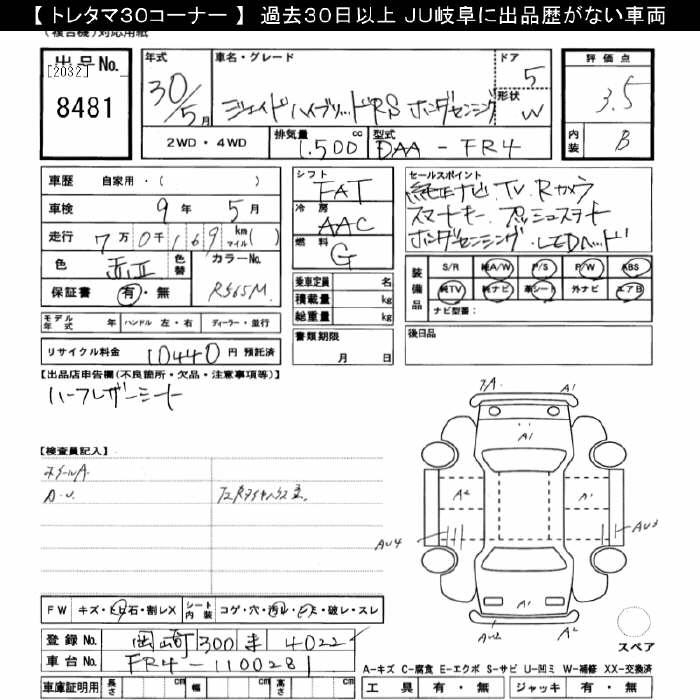 【 トレタマ30コーナー 】 過去30日以上 JU岐阜に出品歴がない車両
（複合機）対応用紙
出品No.
[2032]
8481
年式
30/5月
車名・グレード
ジェイドハイブリッドRS ホンダセンシング
ドア
5
形状
W
評価点
3.5
内装
B
2WD・4WD
排気量 1,500 cc
型式 DAA - FR4
車歴 自家用・( )
車検 9年 5月
走行 7万0千169 km マイル( )
色
色替
カラーNo.
保証書 有・無
R565M
モデル年式 年 ハンドル 左・右 ディーラー・並行
リサイクル料金 10440 円 預託済
シフト
FAT
冷房
AAC
燃料
G
乗車定員 名
積載量 kg
総重量 kg
書類期限
月 日
セールスポイント
純正ナビ.TV.Rカメラ
スマートキー.プッシュスタート
ホンダセンシング.LEDヘッド
装備品
S/R 純A/W P/S P/W ABS
純TV 純ナビ 革シート 外ナビ エアB
ナビ型番：
後日品
【出品店申告欄(不良箇所・欠品・注意事項等)】
ハーフレザーシート
【検査員記入】
ホイールA
A.U.
FW キズ・ヒビ・石・割レX
シート内装 コゲ・穴・汚レ・シミ・破レ・スレ
登録No. 岡崎 300 4022
車台No. FR4-1100281
車庫証明用 長さ cm 幅 cm 高さ cm
A1
A1
A2
A1
AU4
AU3
AU2
A1
スペア
A-キズ C-腐食 E-エクボ S-サビ U-凹ミ W-補修 XX-交換済
工具 有・無 ジャッキ 有・無